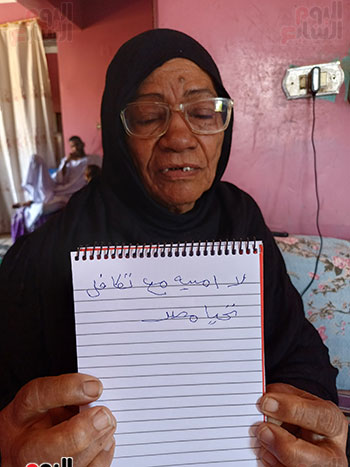 اليوم السابع
لا امية مع تكافل
تحيا مصر
اليوم